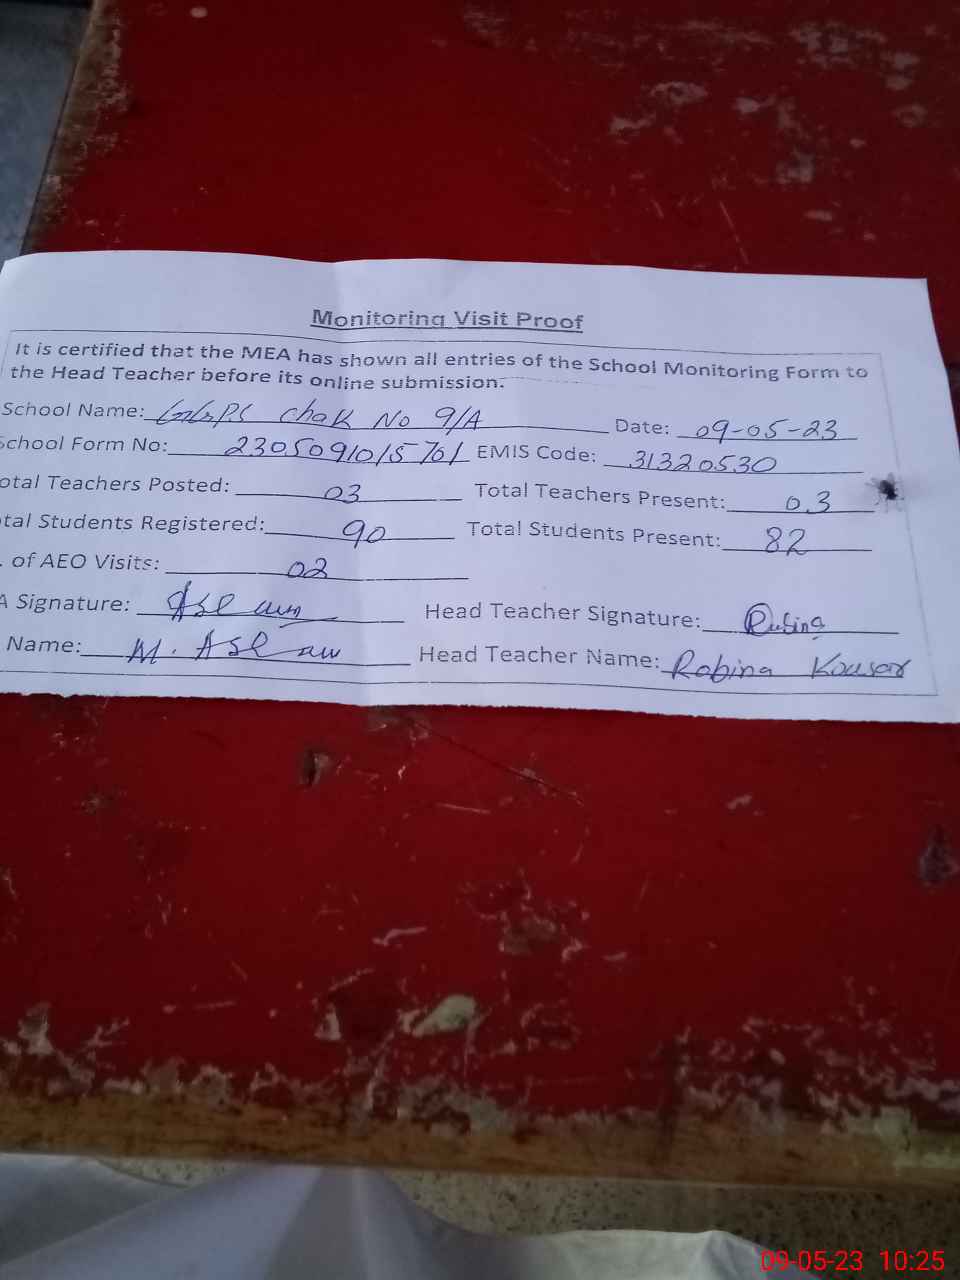 Monitoring Visit Proof
It is certified that the MEA has shown all entries of the School Monitoring Form to
the Head Teacher before its online submission.
School Name: GGPS Chak No 9/A Date: 09-05-23
School Form No: 2305091015761 EMIS Code: 31320530
otal Teachers Posted: 03 Total Teachers Present: 03
tal Students Registered: 90 Total Students Present: 82
. of AEO Visits: 02
A Signature: Aslam Head Teacher Signature: Rubina
Name: M. Aslam Head Teacher Name: Robina Kousar
09-05-23 10:25